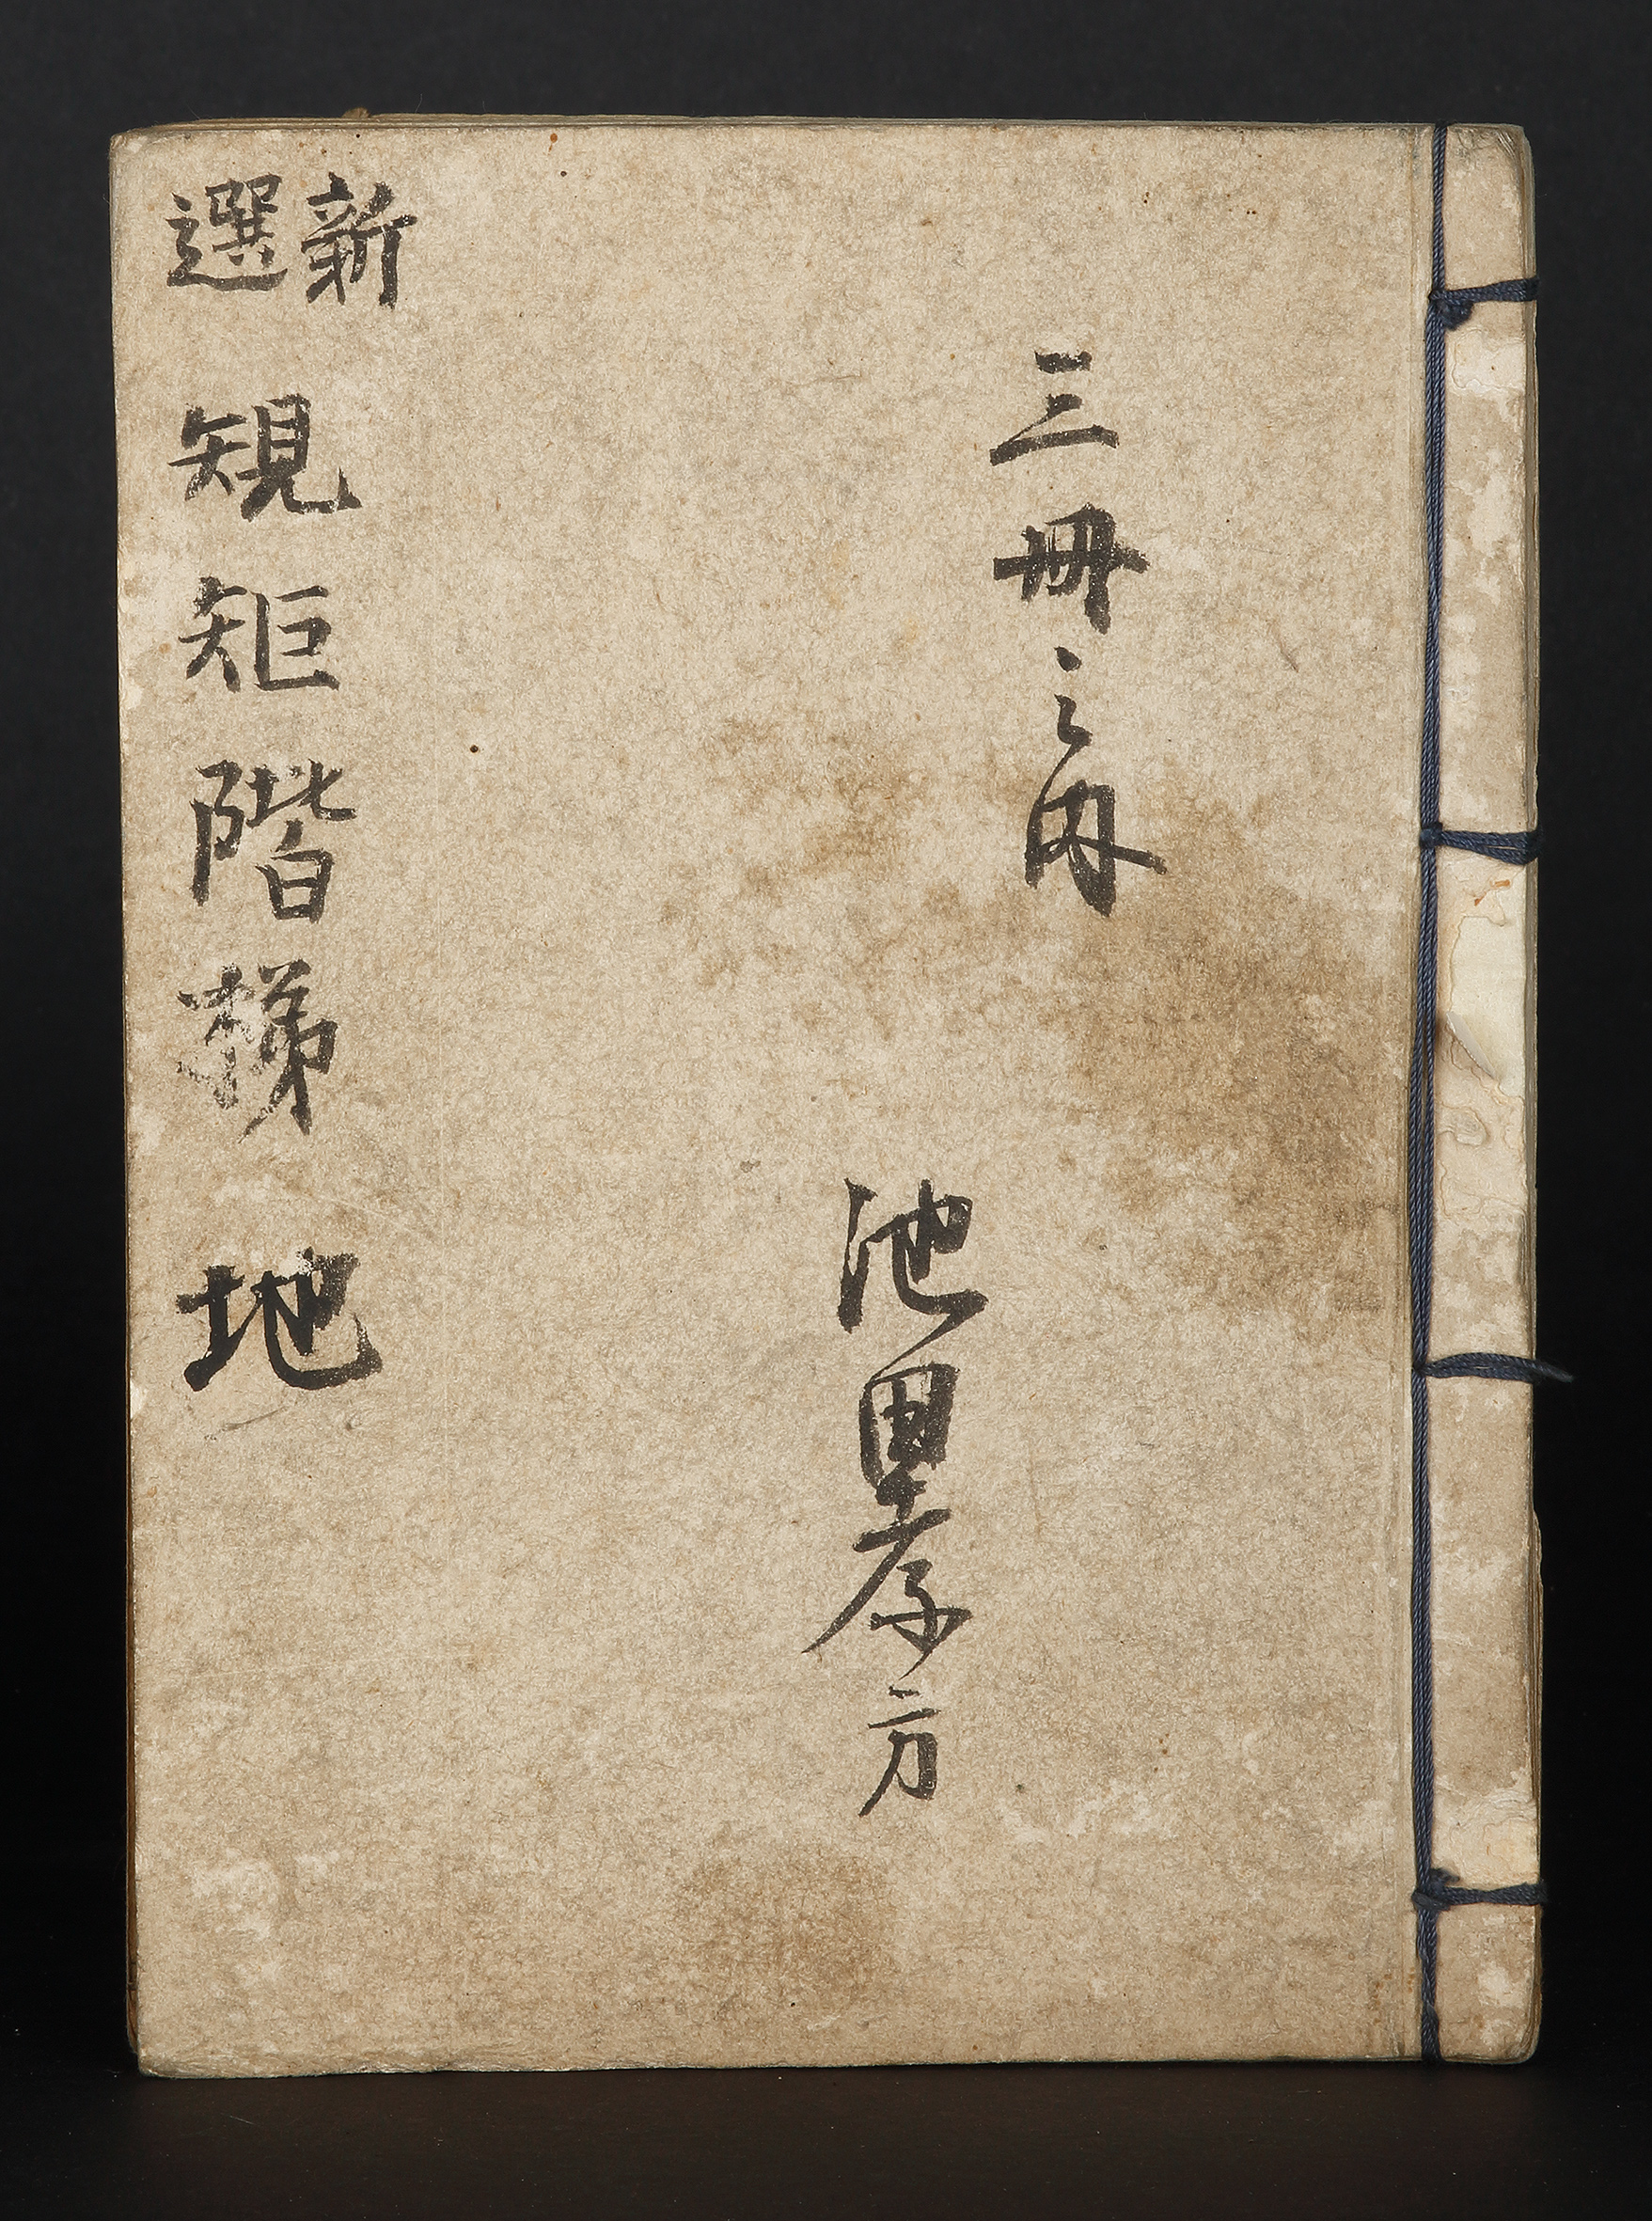 三冊之内
池田孝方
新選䂓矩階梯 地